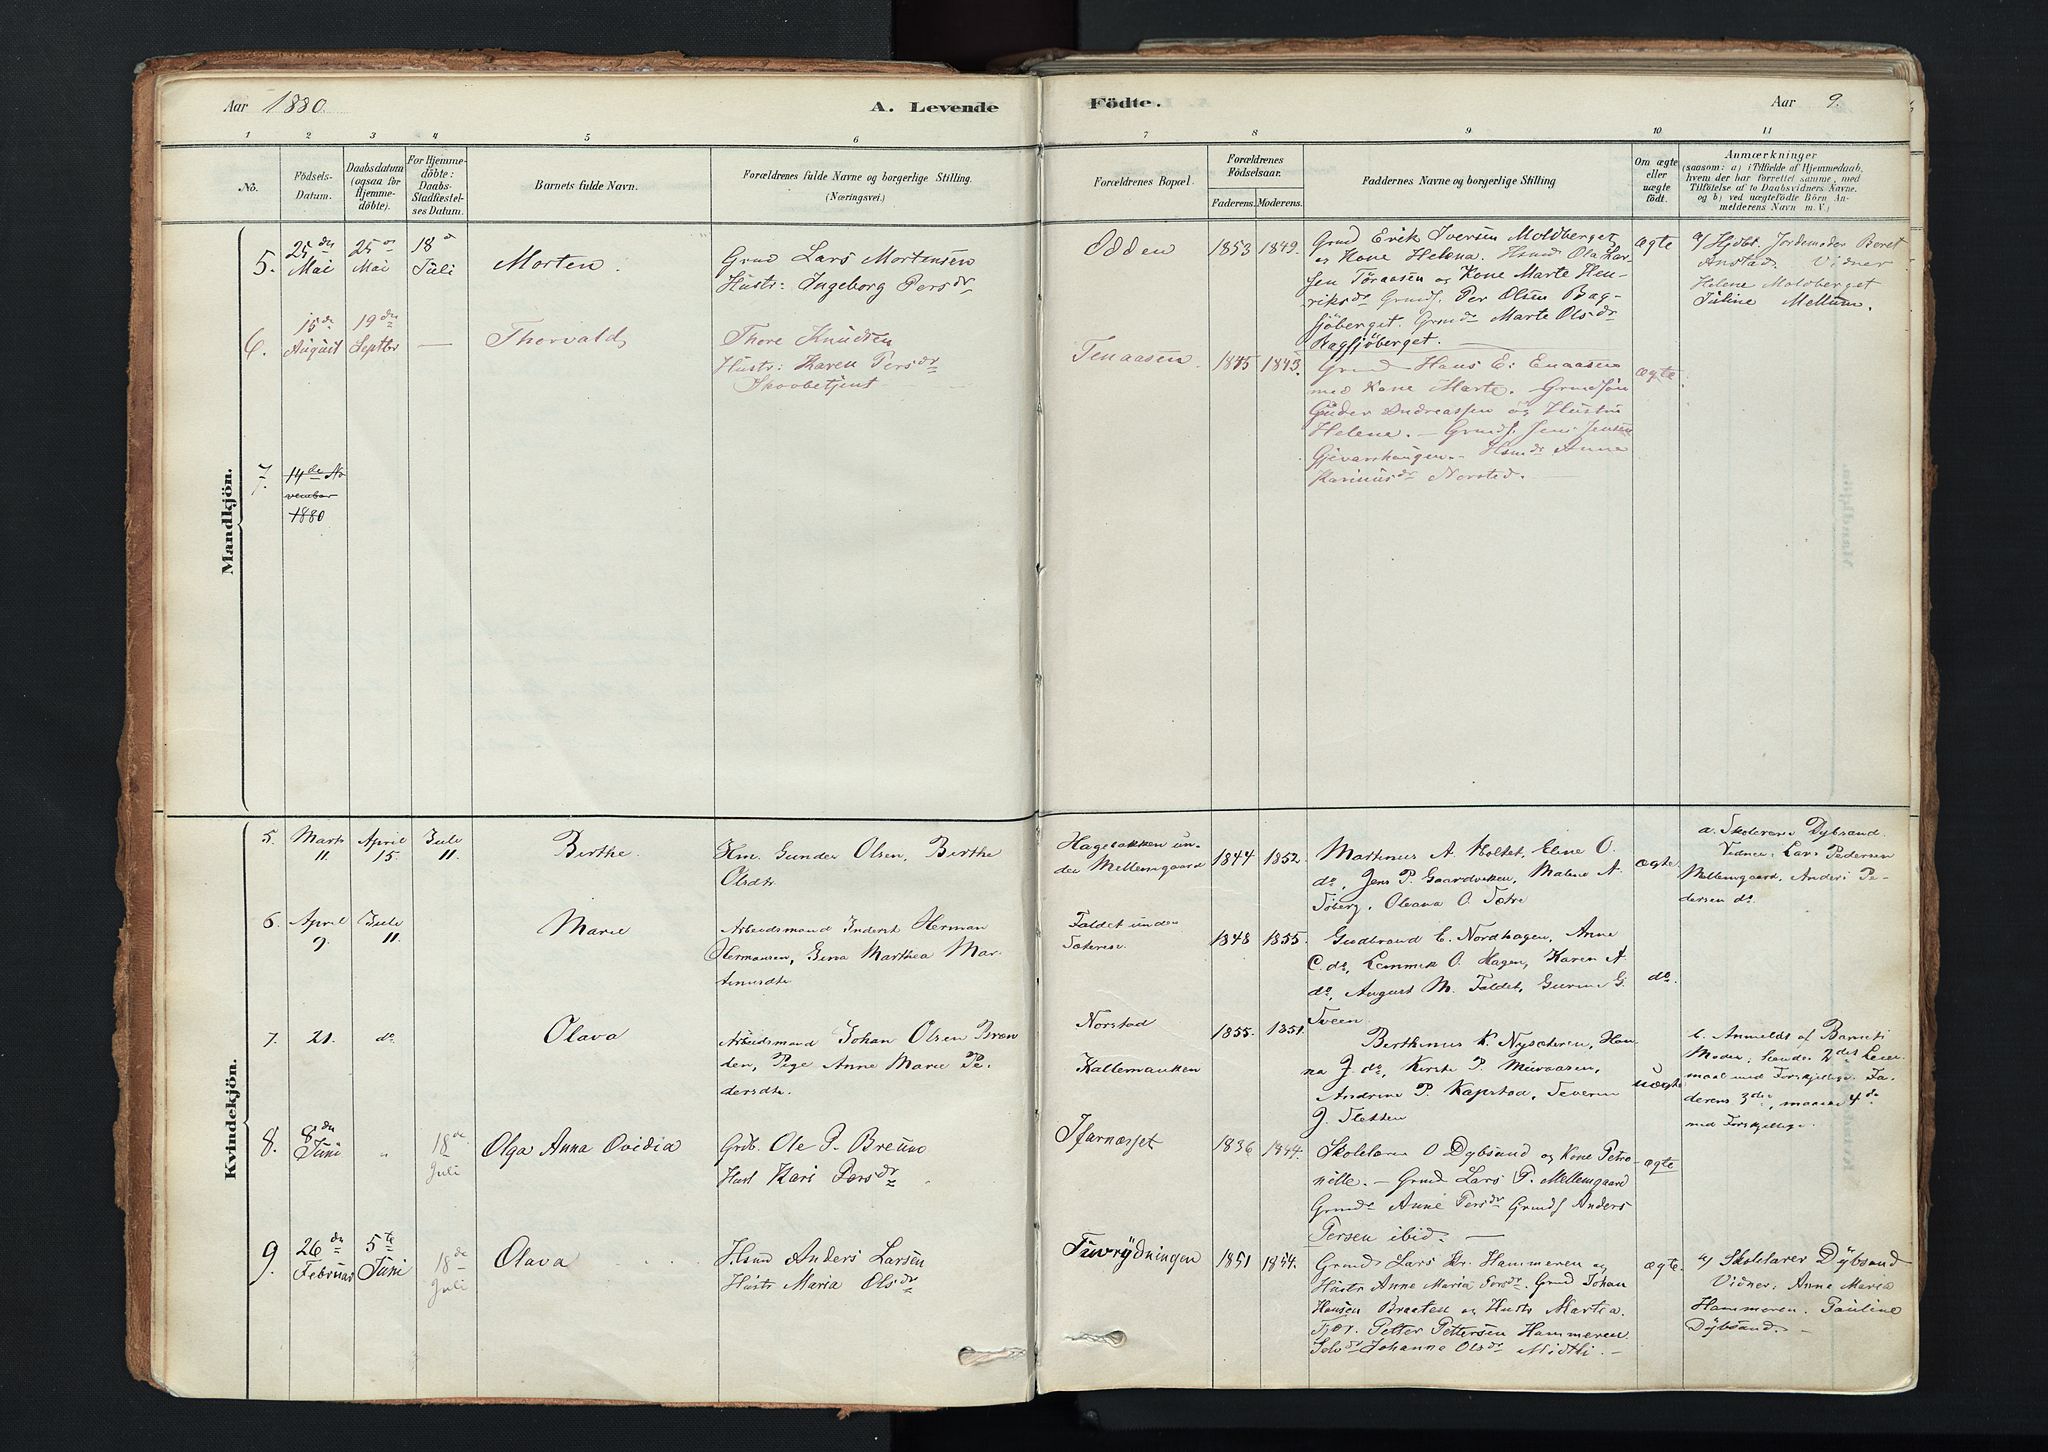 Aar 1880.
A. Levende
Födte.
Aar 9.
1 2 3 4 5 6 7 8 9 10 11
No.
Födsels-
Datum.
Daabsdatum
(ogsaa for
Hjemme-
döbte).
For Hjemme-
döbte:
Daabs-
Stadfæstel-
ses Datum.
Barnets fulde Navn.
Forældrenes fulde Navne og borgerlige Stilling.
(Næringsvei.)
Forældrenes Bopæl.
Forældrenes
Födselsaar.
Faderens. Moderens.
Faddernes Navne og borgerlige Stilling
Om ægte
eller
uægte
födt.
Anmærkninger
(saasom: a) i Tilfælde af Hjemmedaab,
hvem der har forrettet samme, med
Tilföielse af to Daabsvidners Navne.
og b) ved uægtefödte Börn An-
melderens Navn m. V.)
Mandkjön.
5.
25 de
Mai
25 de
Mai
18 d
Juli
Morten.
Grmd Lars Mortensen
Hustr: Ingeborg Persdr
Odden
1853 1849.
Grmd Erik Iversen Moldberget
og Kone Helena. Hsmd Ola Lar-
sen Töraasen og Kone Marte Hen-
riksdr Grmds. Per Olsen Bag-
sjöberget. Grmds Marte Olsdr
Bagsjöberget.
ægte
a/ Hjdbt. Jordemoder Beret
Anstad. Vidner
Helene Moldberget
Juline Mellum.
6.
15 de
August
19 de
Septbr
—
Thorvald
Thore Knudsen
Hustr: Karen Persdr
Skovbetjent
Tenaasen
1835 1843.
Grmd Hans E. Enaasen
med Kone Marte. Grmdsön
Guder Andreassen og Hustru
Helene. — Grmds. Jens Jensen
Gjevarshaugen. Hsmds Anne
Karinusdr Norsted. —
ægte
7.
14de No
vember
1880
Kvindekjön.
5.
Marts
11.
April
15.
Juli
11.
Berthe.
Hm. Gunder Olsen, Berthe
Olsdtr
Hagebakken un-
der Mellemgaard
1844 1852.
Martinus A. Moltet, Eline O.
do, Jens P. Gaardvikken, Malene A.
Töberg, Oleana O. Sætre
ægte.
a. Skolelærer Dybsand.
Vidner: Lars Pedersen
Mellemgaard, Anders Pe-
dersen do.
6.
April
9.
Juli
11.
Marie
Arbeidsmand Inderst Herman
Hermansen, Gina Marthea Mar-
tinusdtr.
Faldet under
Sæterese.
1848 1855.
Gudbrand E. Nordhagen, Anne
C. do, Lemmik O. Hagen, Karen A.
do, August M. Faldet, Gurine G.
Tveen.
do.
7.
21.
do
Olava
Arbeidsmand Johan Olsen Bræn
den, Pige Anne Marie Pe-
dersdtr.
Norstad
Kallernakken
1855. 1851.
Berthinus K. Nysæteren, Han-
na J. do, Kirste P. Muraasen,
Andrine P. Kapstad, Severin
J. Sletten
uægte
b. Anmeldt af Barnets
Moder; hendes 2det Leier-
maal med Forskjellige. Fa-
derens 3die, maaske 4de
med Forskjellige.
8.
8 de
Juni
"
18 de
Juli
Olga Anna Ovidia
Grdb. Ole P. Breum
Hust Kari Persdr
Sparnæsset
1836 1844.
Skolelærer O Dybsand og Kone Petro-
nille. — Grmd Lars P. Mellemgaard
Grmds Anne Persdr Grmds Anders
Persen ibid. —
ægte
9.
26 de
Februar
5 te
Juni
18 de
Juli
Olava
Hsmd Anders Larsen
Hustr Maria Olsdr
Tuvrydningen
1851 1854.
Grmd Lars Kr. Hammeren og
Hustr Anne Maria Persdr. Grmd Johan
Hansen Braaten og Hustr Martea.
Tjgr. Petter Pettersen Hammeren.
Selvds Johanne Olsdr Midtli. —
ægte.
a/ Skolelærer Dybsand
Vidner: Anne Maria
Hammeren. Pauline
Dybsand. —